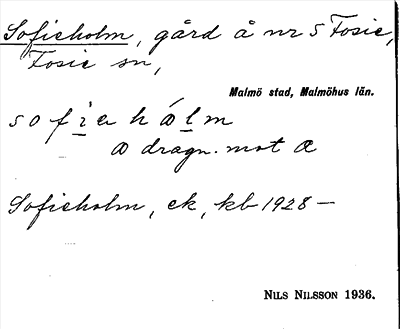 Sofieholm, gård å nr 5 Fosie,
Fosie sn,
Malmö stad, Malmöhus län.
sofiehålm
a dragn. mot æ
Sofieholm, ek, kb 1928 —
NILS NILSSON 1936.